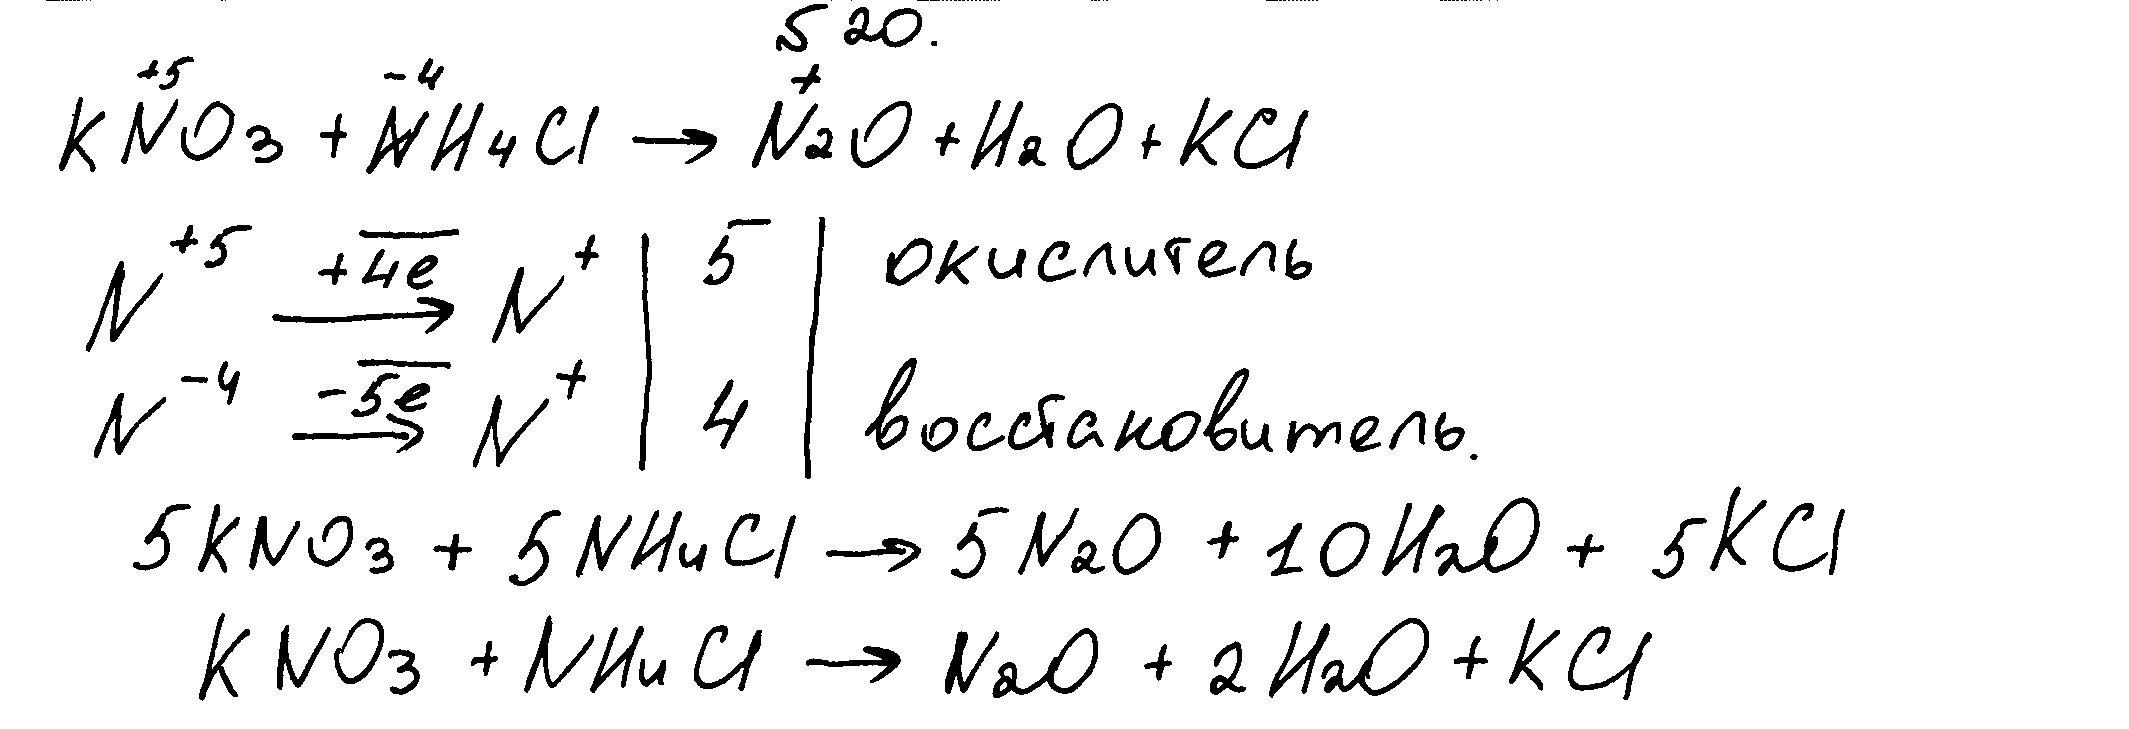 520.
+5 -4 +
KNO3 + NH4Cl → N2O + H2O + KCl
N+5 +4e → N+ | 5 | окислитель
N-4 -5e → N+ | 4 | восстановитель.
5KNO3 + 5NH4Cl → 5N2O + 10H2O + 5KCl
KNO3 + NH4Cl → N2O + 2H2O + KCl